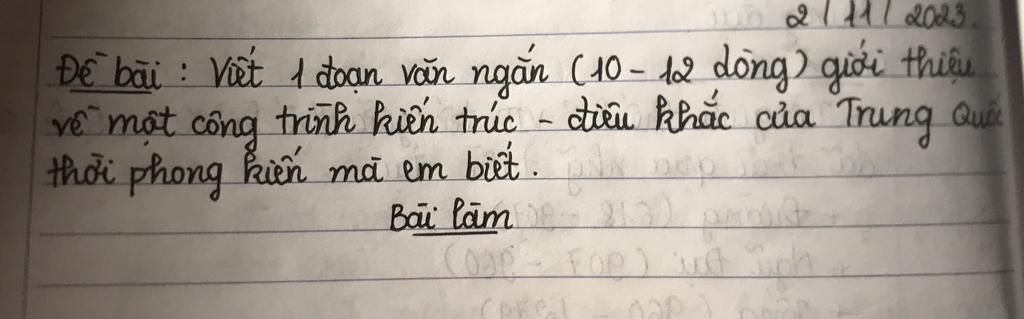 2/11/2023.
Đề bài : Viết 1 đoạn văn ngắn (10 - 12 dòng) giới thiệu
về một công trình kiến trúc - điêu khắc của Trung Quốc
thời phong kiến mà em biết.
Bài làm